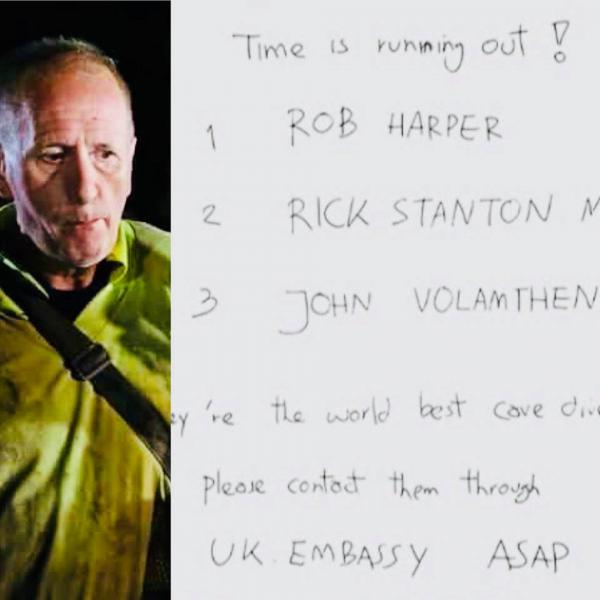 Time is running out!
1 ROB HARPER
2 RICK STANTON M
3 JOHN VOLAMTHEN
ey're the world best cave div
please contact them through
UK. EMBASSY ASAP